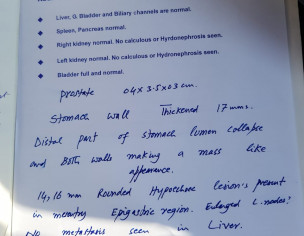 Liver, G. Bladder and Biliary channels are normal.
Spleen, Pancreas normal.
Right kidney normal. No calculous or Hyrdonephrosis seen.
Left kidney normal. No calculous or Hydronephrosis seen.
Bladder full and normal.
prostate 04 x 3.5 x 03 cm.
Stomach wall Thickened 17 mms.
Distal part of stomach lumen collapse
and Both walls making a mass like
14, 16 mm Rounded Hypoechoic present
in Epigastric region. Enlarged L. nodes?
No metastasis seen in Liver.